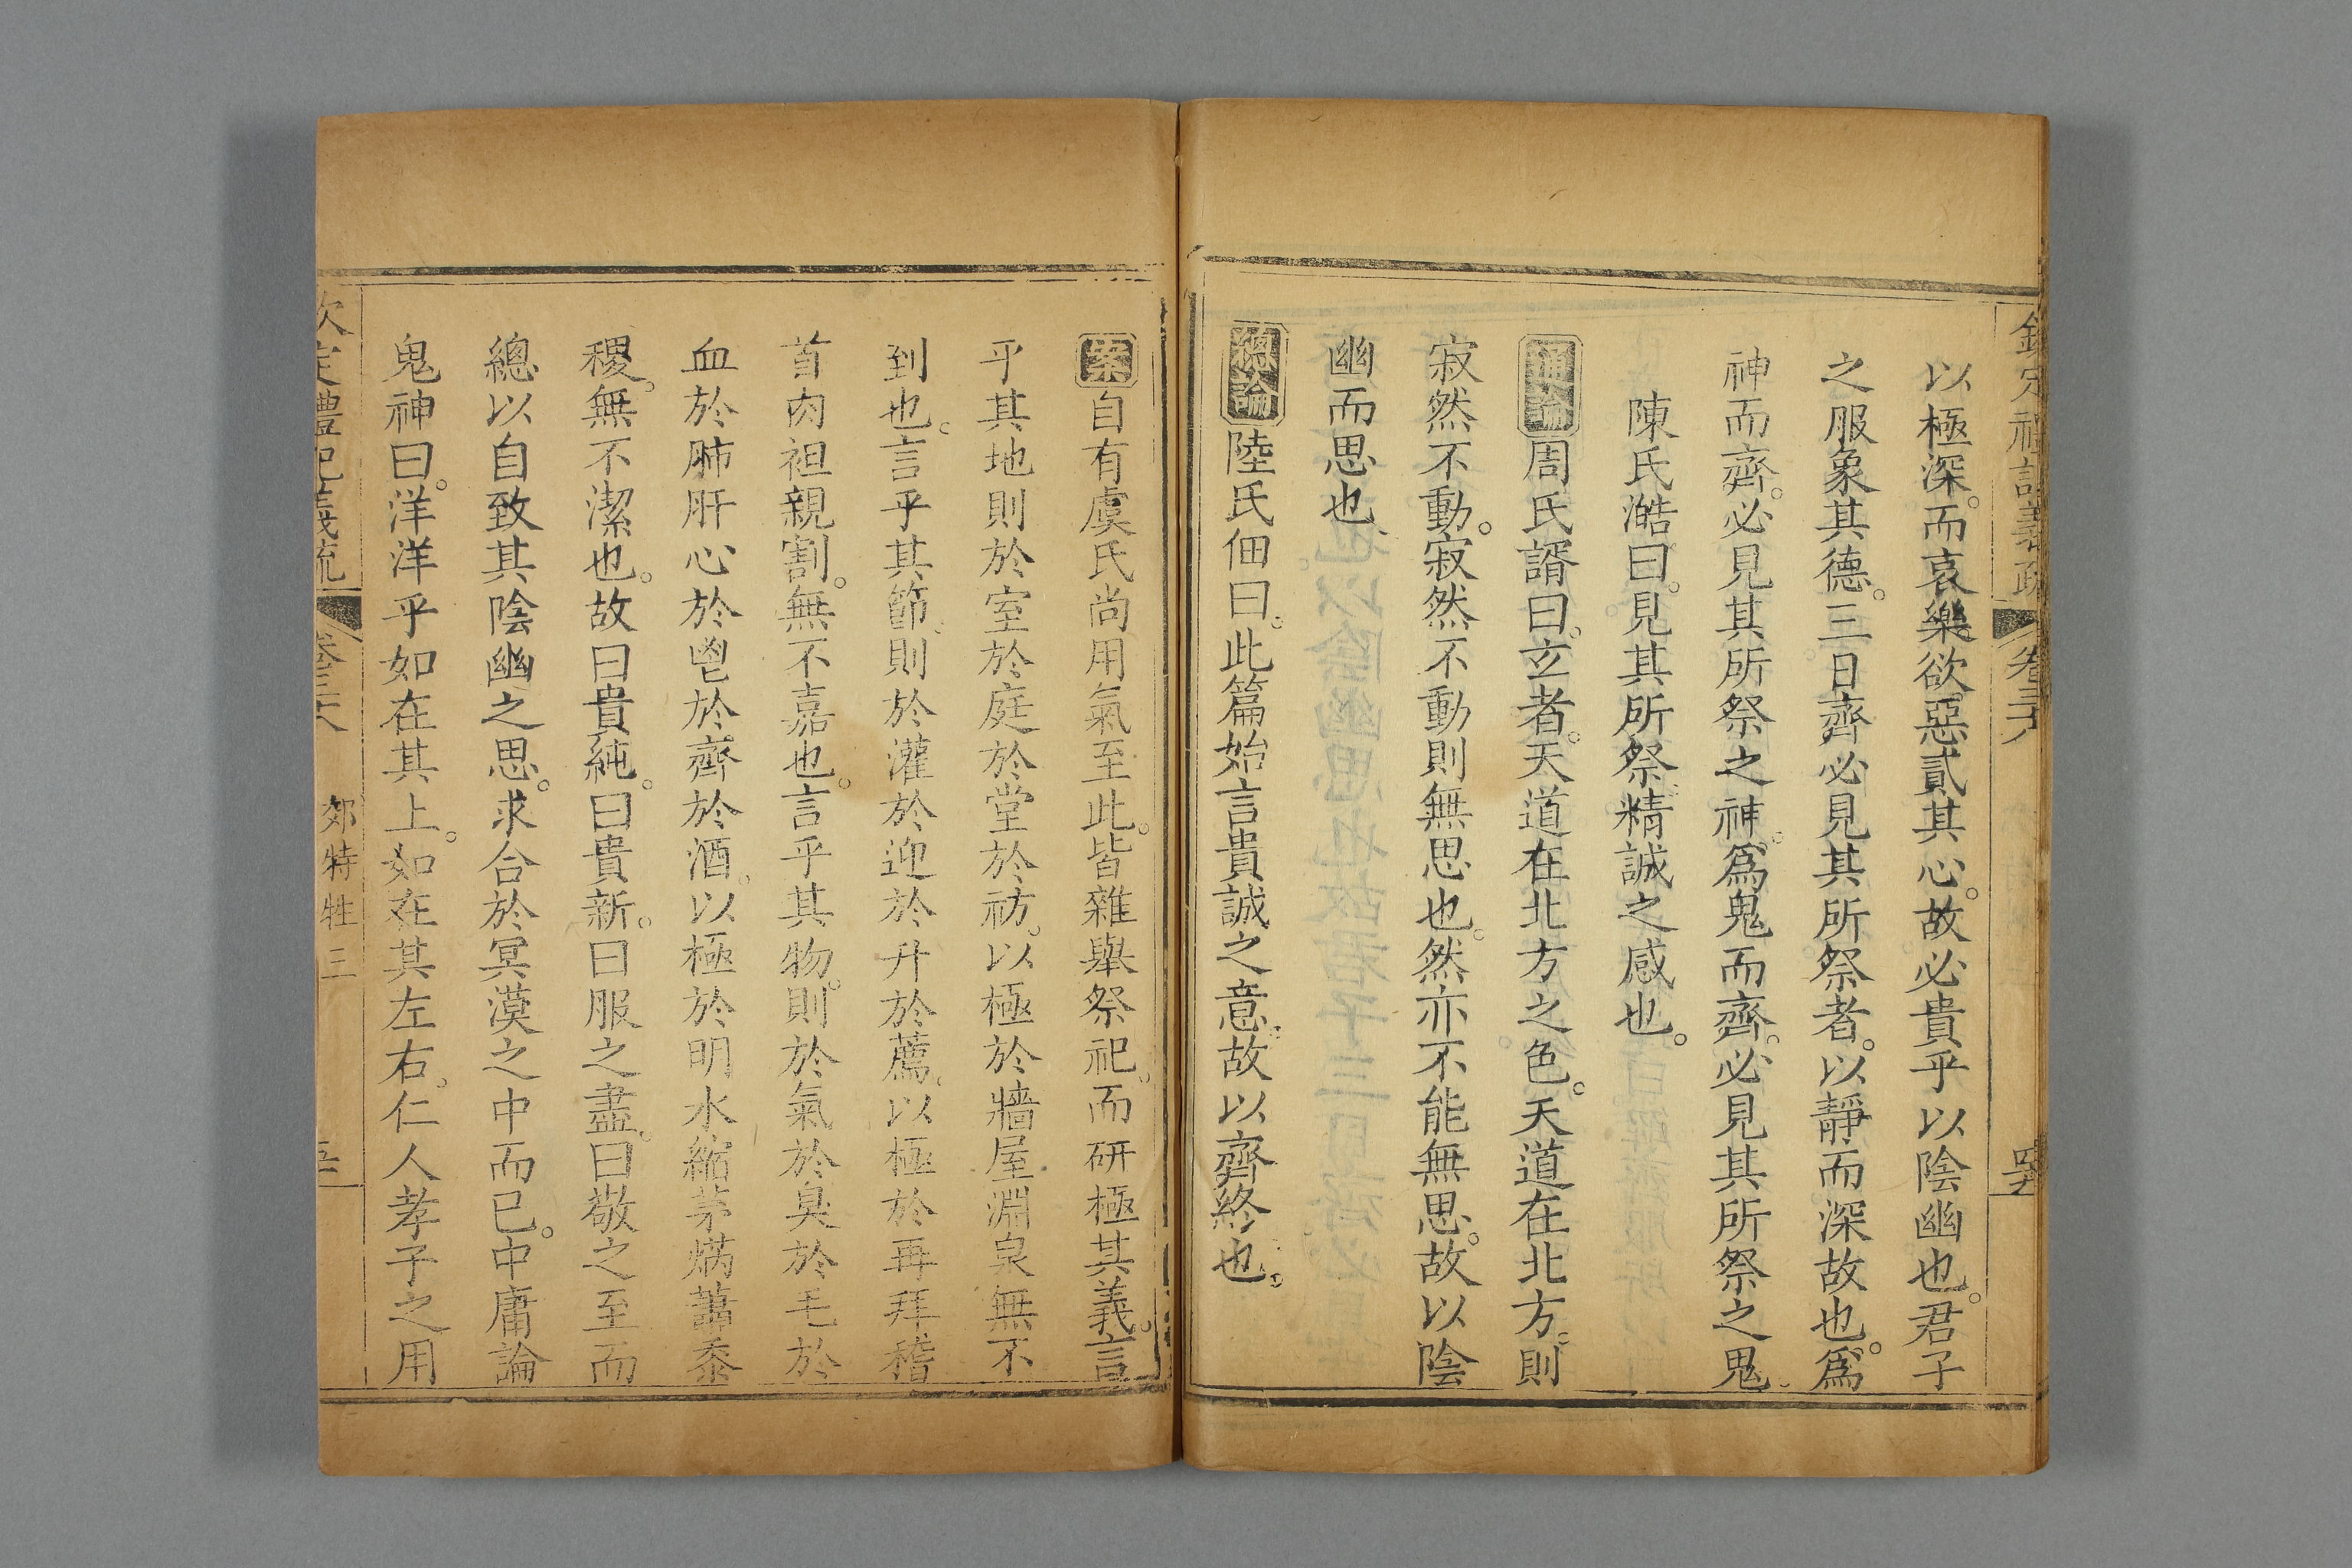 以極深。而哀樂欲惡貳其心。故必貴乎以陰幽也。君子
之服象其德。三日齊必見其所祭者。以靜而深故也。爲
神而齊。必見其所祭之神。爲鬼而齊。必見其所祭之鬼。
陳氏澔曰。見其所祭精誠之感也。
通論周氏諝曰。玄者。天道在北方之色。天道在北方。則
寂然不動。寂然不動則無思也。然亦不能無思。故以陰
幽而思也
總論陸氏佃曰。此篇始言貴誠之意。故以齊終也。
案自有虞氏尚用氣至此。皆雜舉祭祀。而研極其義。言
乎其地則於室於庭於堂於祊。以極於牆屋淵泉無不
到也。言乎其節。則於灌於迎於升於薦。以極於再拜稽
首肉袒親割。無不嘉也。言乎其物。則於氣於臭於毛於
血於肺肝心於鬯於齊於酒。以極於明水縮茅焫蕭黍
稷。無不潔也。故曰貴純。曰貴新。曰服之盡。曰敬之至而
總以自致其陰幽之思。求合於冥漠之中而已。中庸論
鬼神曰。洋洋乎如在其上。如在其左右。仁人孝子之用
欽定禮記義疏 卷三十六 郊特牲三